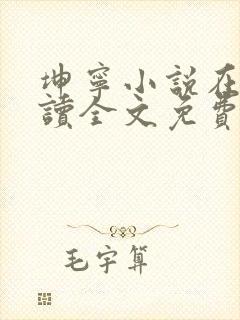 坤寧小說在
讀全文免費
毛宇算